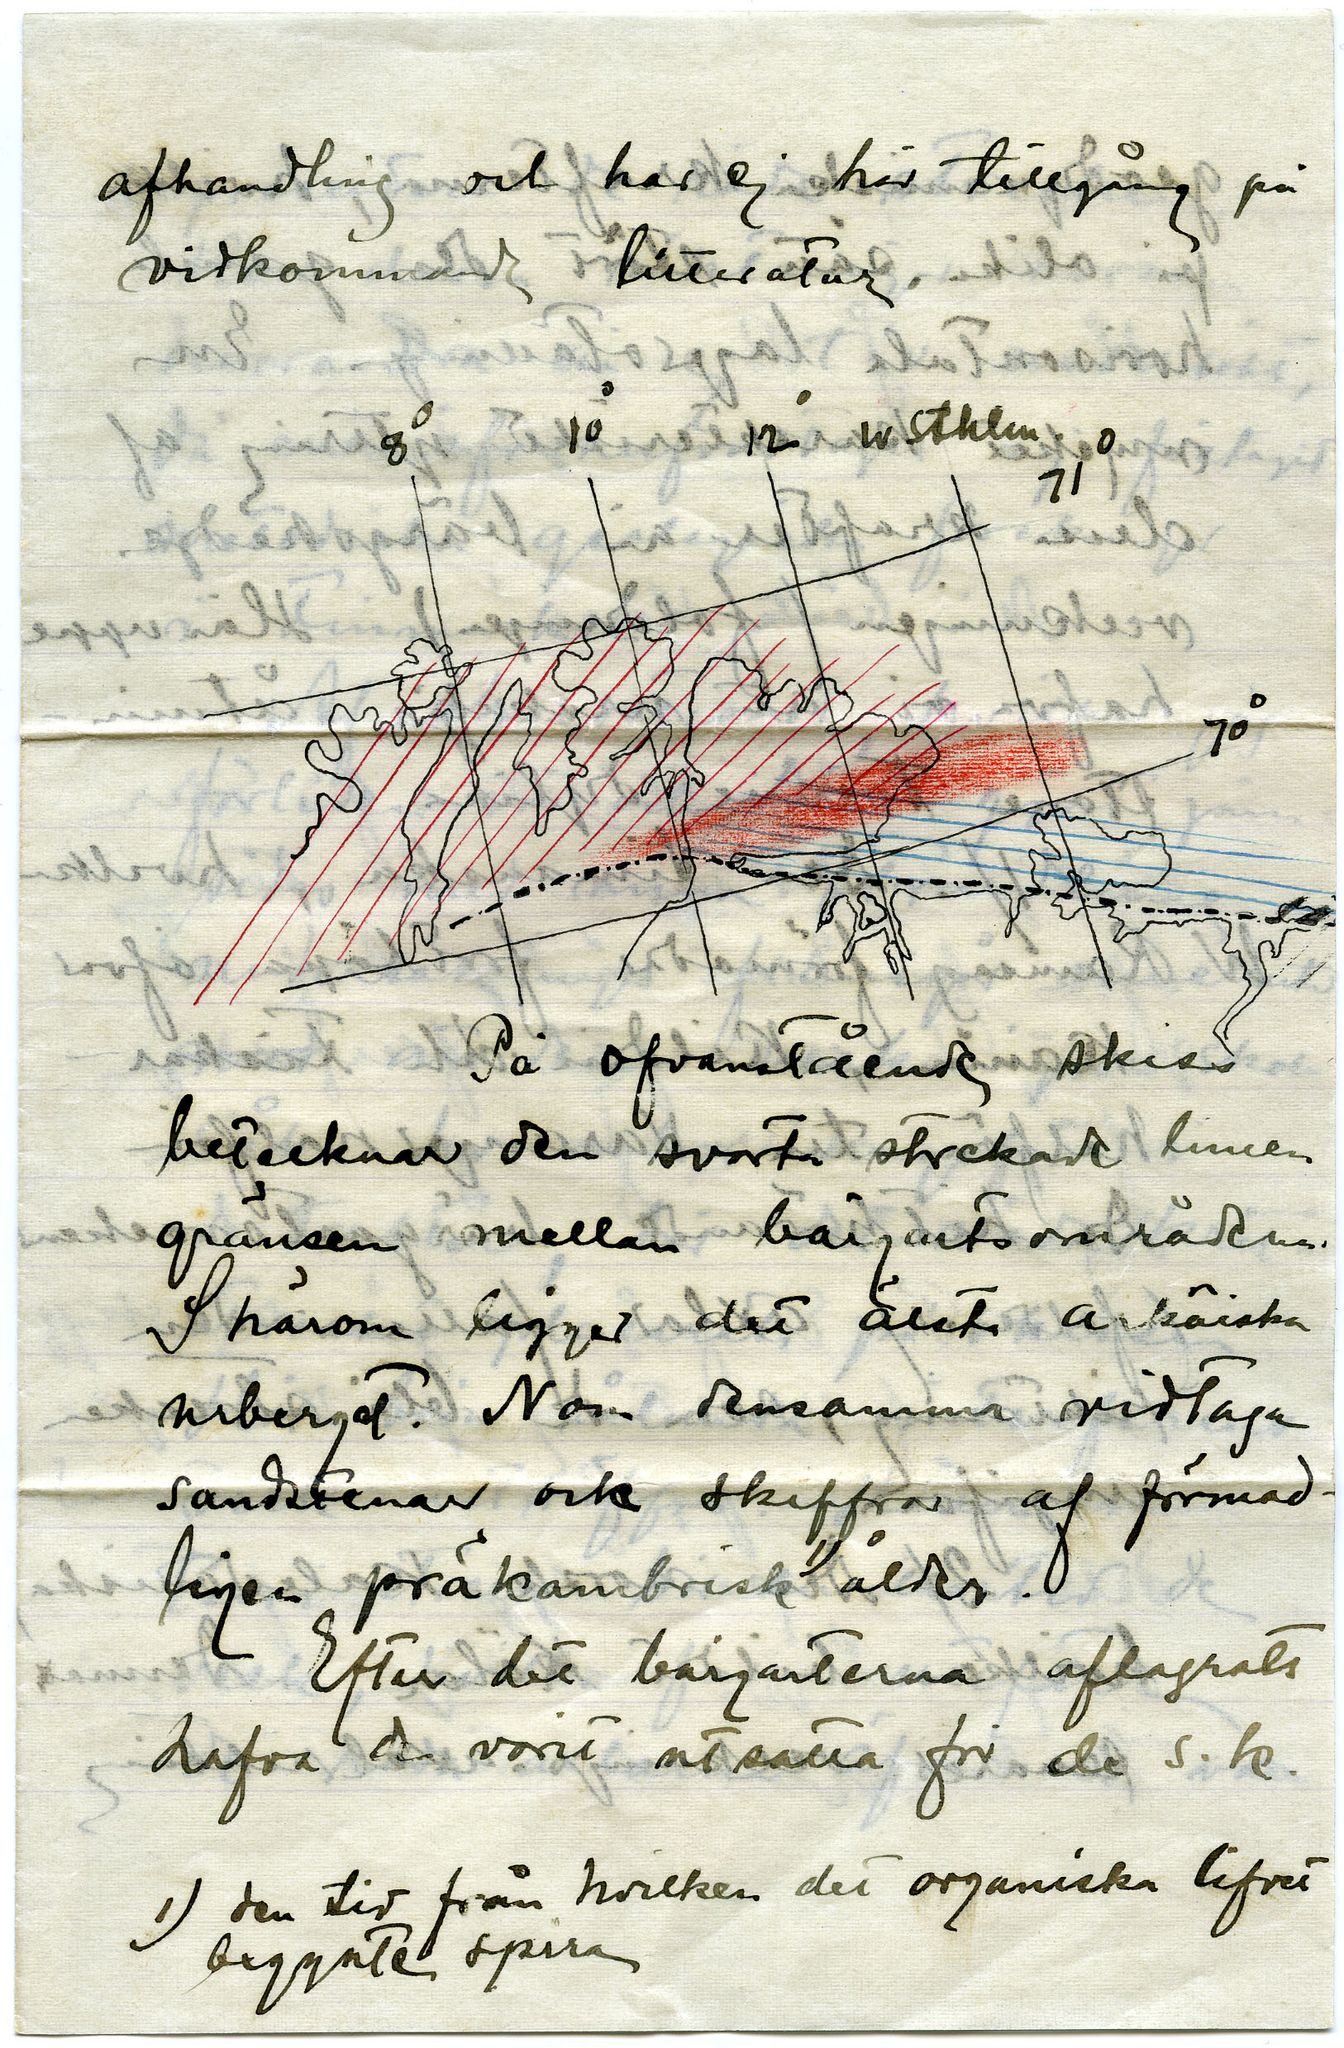 afhandling och har ej här tillgång på
vidkommande litteratur.
8° 10° 12° W Sthlm
71°
70°
På ofvanstående skiss
betecknar den svarta streckade linien
gränsen mellan bärgartsområdena.
S härom ligger det älsta arkäiska
urberget. N om densamma vidtaga
sandstenar och skiffrar af förmod-
ligen präkambrisk 1) ålder.
Efter det bärgarterna aflagrats
hafva de varit utsatta för de s.k.
1) den tid från hvilken det organiska lifvet
begynte spira